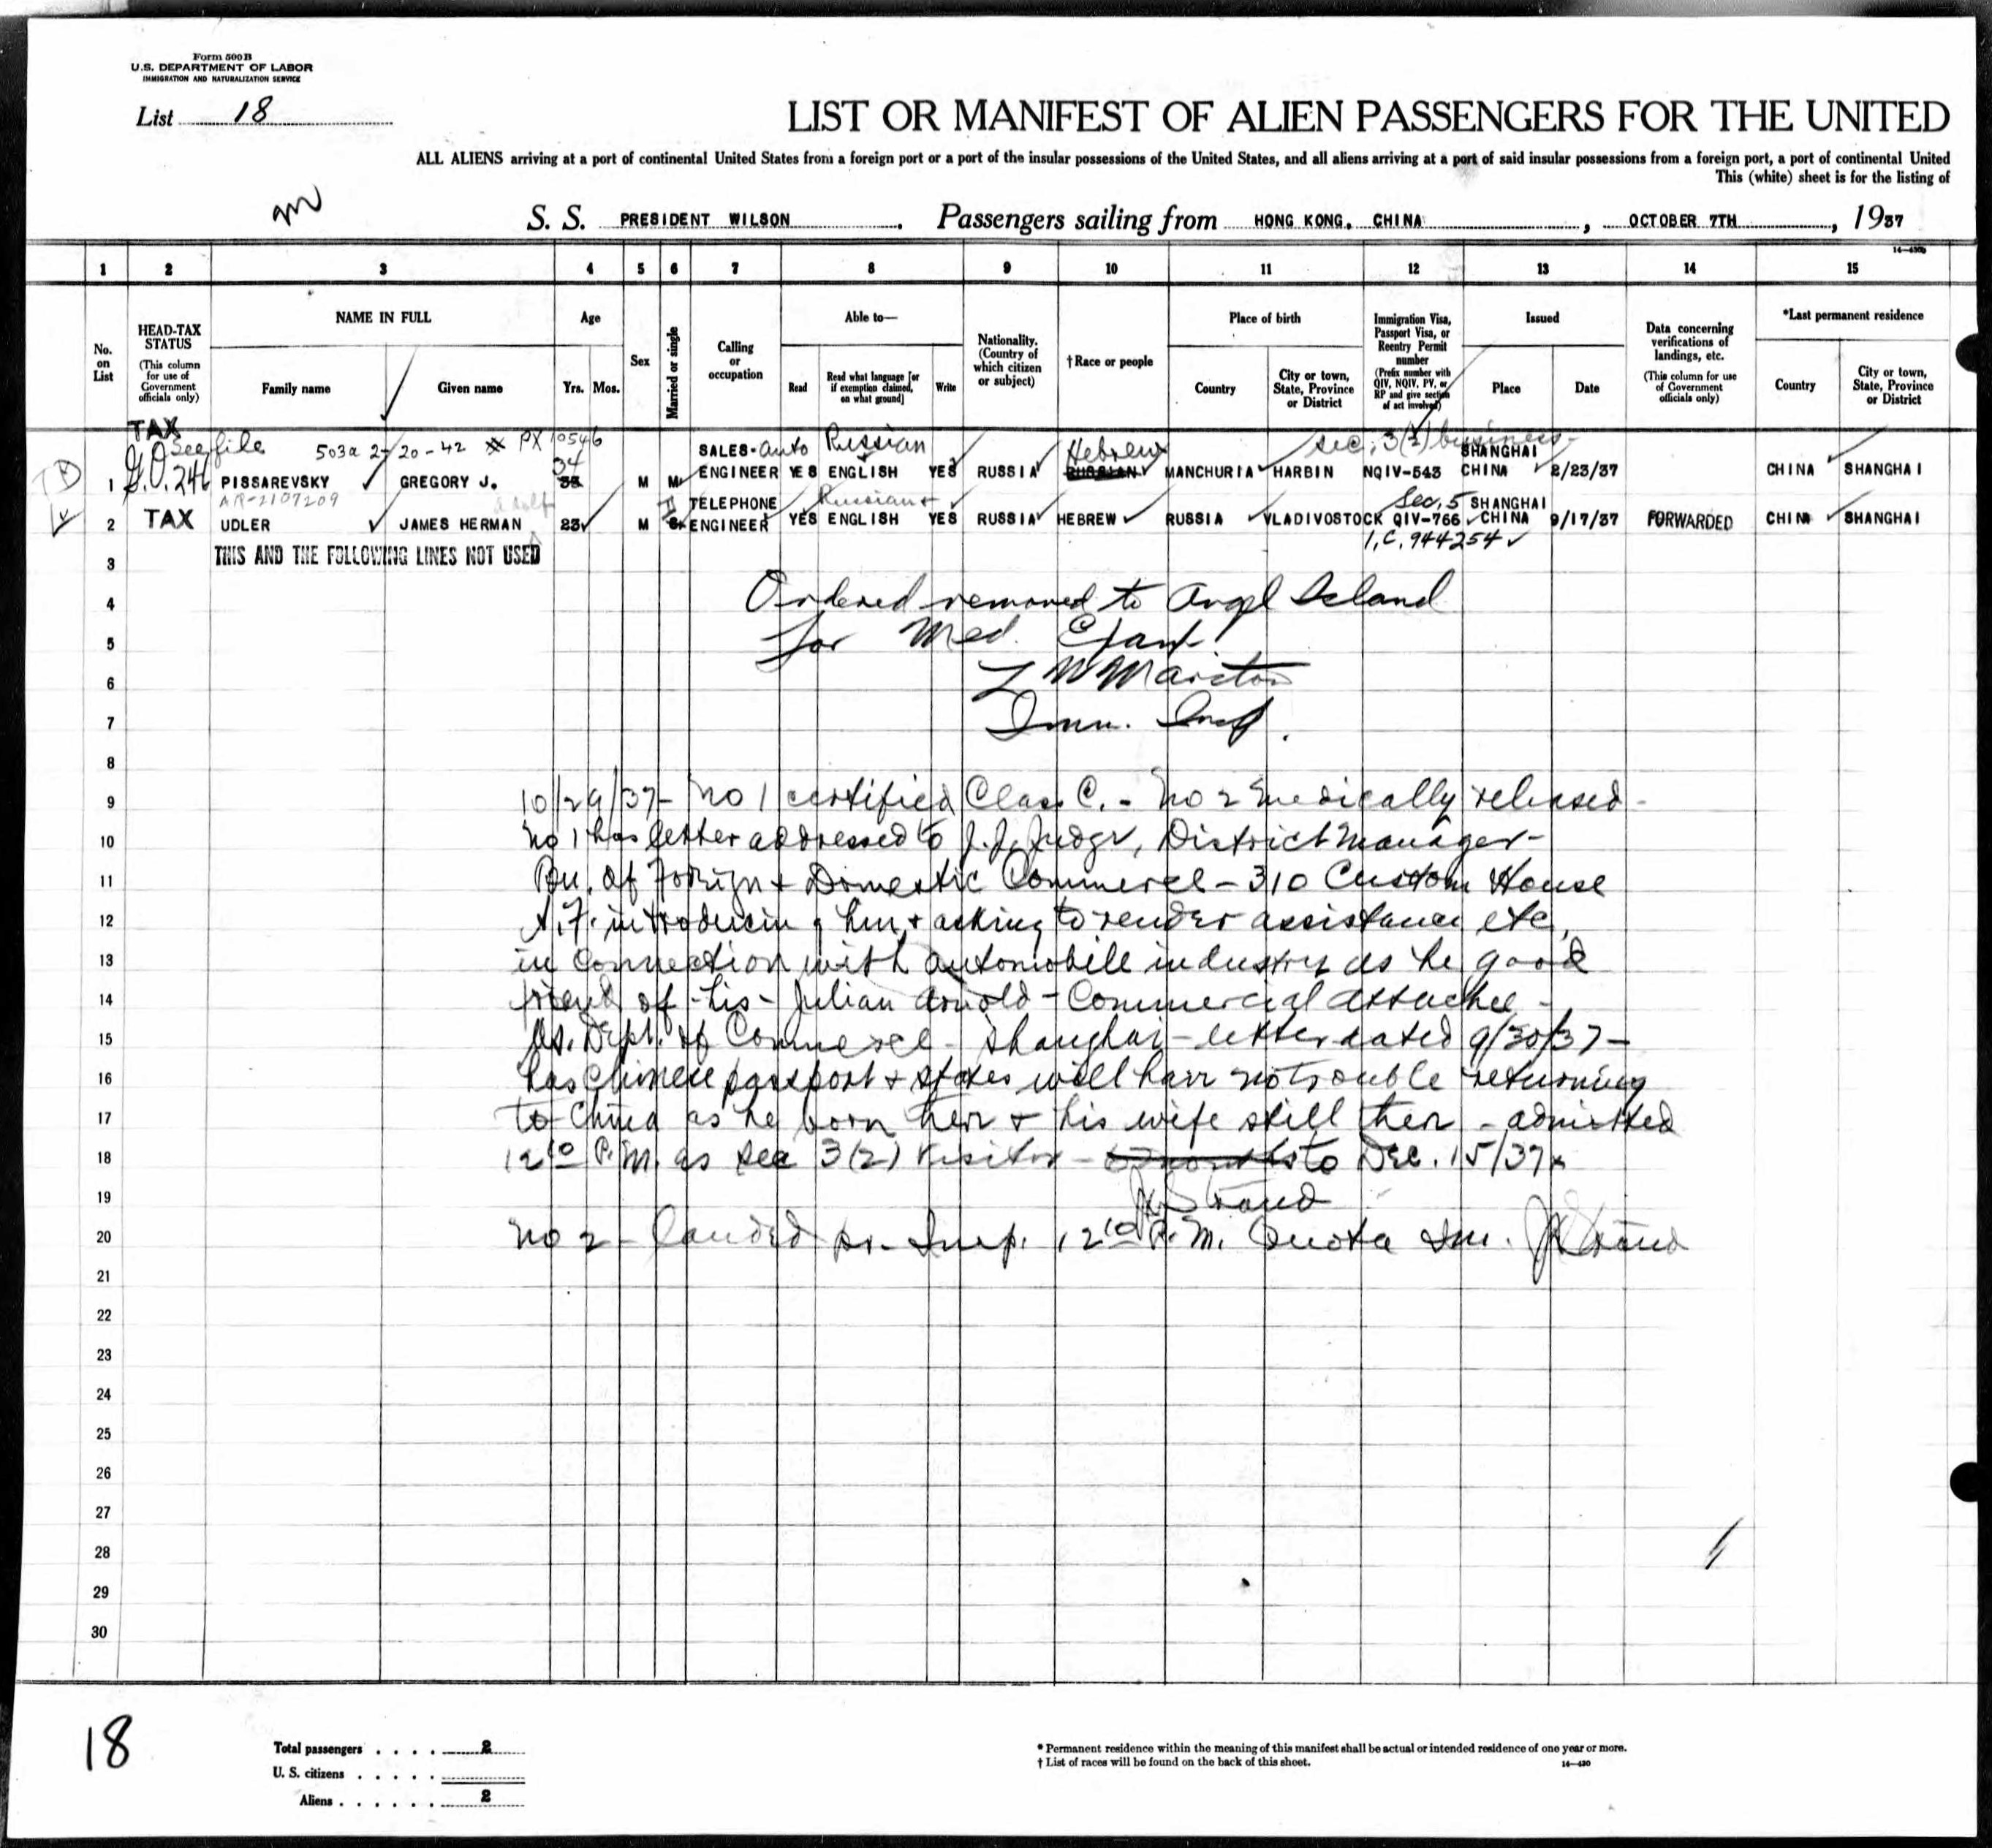 Form 500 B
U.S. DEPARTMENT OF LABOR
IMMIGRATION AND NATURALIZATION SERVICE
List 18
LIST OR MANIFEST OF ALIEN PASSENGERS FOR THE UNITED
ALL ALIENS arriving at a port of continental United States from a foreign port or a port of the insular possessions of the United States, and all aliens arriving at a port of said insular possessions from a foreign port, a port of continental United
This (white) sheet is for the listing of
S. S. PRESIDENT WILSON, Passengers sailing from HONG KONG, CHINA, OCTOBER 7TH, 1937
1 2 3 4 5 6 7 8 9 10 11 12 13 14 15
No. on List
HEAD-TAX STATUS (This column for use of Government officials only)
NAME IN FULL Family name Given name
Age Yrs. Mos.
Sex
Married or single
Calling or occupation
Able to— Read Read what language [or if exemption claimed, on what ground] Write
Nationality. (Country of which citizen or subject)
† Race or people
Place of birth Country City or town, State, Province or District
Immigration Visa, Passport Visa, or Reentry Permit number (Prefix number with QIV, NQIV, PV, or RP and give section of act involved)
Issued Place Date
Data concerning verifications of landings, etc. (This column for use of Government officials only)
*Last permanent residence Country City or town, State, Province or District
TAX
See file 503a 2-20-42 PX 10546 34 SALES- Auto Russian Hebrew Sec. 3(2) business SHANGHAI
1 G.O. 246 PISSAREVSKY GREGORY J. 33 M M ENGINEER YES ENGLISH YES RUSSIA RUSSIAN MANCHURIA HARBIN NQIV-543 CHINA 2/23/37 CHINA SHANGHAI
AR-2107209 Adolf TELEPHONE Russian + Sec, 5 SHANGHAI
2 TAX UDLER JAMES HERMAN 23 M S ENGINEER YES ENGLISH YES RUSSIA HEBREW RUSSIA VLADIVOSTOCK QIV-766 CHINA 9/17/37 FORWARDED CHINA SHANGHAI
I.C. 944254
3 THIS AND THE FOLLOWING LINES NOT USED
4 Ordered removed to Angel Island
5 for Med. Exam.
6
7 Imm. Insp.
8
9 10/29/37- No 1 certified Class C. - No 2 medically released -
10 No 1 has letter addressed to J.J. Judge, District Manager-
11 Bu. of Foreign & Domestic Commerce - 310 Custom House
12 S.F. introducing him & asking to render assistance etc,
13 in connection with automobile industry as he good
14 friend of his - Julian Arnold - Commercial Attachee -
15 US. Dept. of Commerce - Shanghai - letter dated 9/30/37 -
16 has Chinese passport & states will have no trouble returning
17 to China as he born there & his wife still there - admitted
18 12 10 P.M. as Sec 3(2) Visitor - to Dec. 15/37
19 Strand
20 No 2 - landed pr. Insp. 12 10 P.M. Quota Im. Strand
21
22
23
24
25
26
27
28
29
30
18
Total passengers . . . . 2
U. S. citizens . . . . .
Aliens . . . . . . 2
* Permanent residence within the meaning of this manifest shall be actual or intended residence of one year or more.
† List of races will be found on the back of this sheet.
14—430